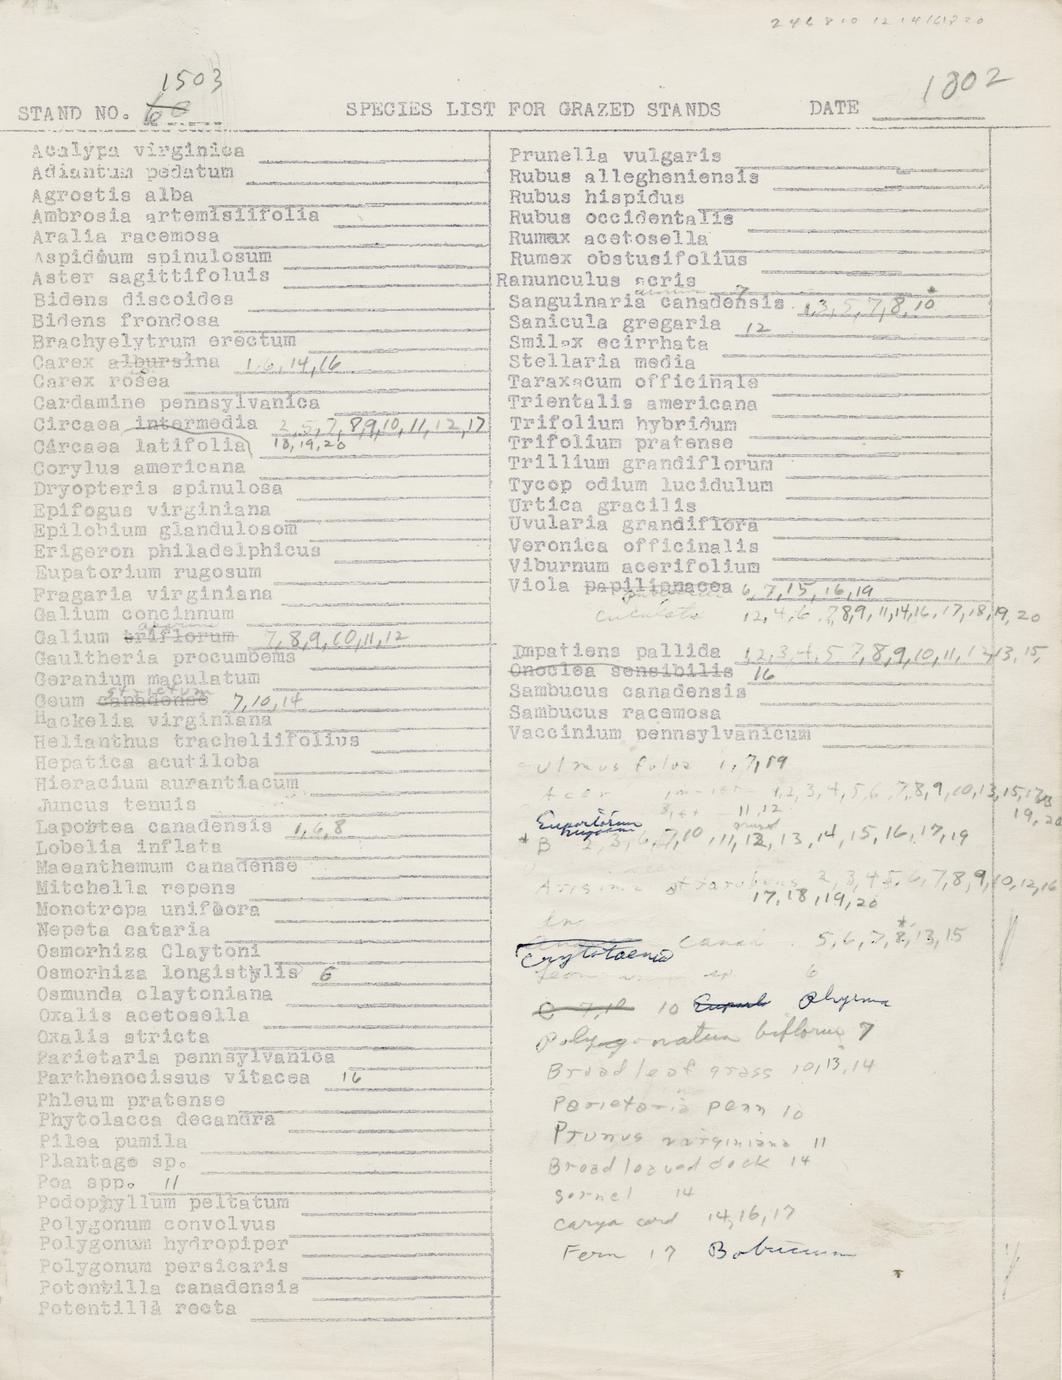 2 4 6 8 10 12 14 16 18 20
1503
1802
STAND NO. SPECIES LIST FOR GRAZED STANDS DATE
Acalypa virginica
Adiantum pedatum
Agrostis alba
Ambrosia artemisiifolia
Aralia racemosa
Aspidium spinulosum
Aster sagittifoluis
Bidens discoides
Bidens frondosa
Brachyelytrum erectum
Carex albursina 1,6,14,16
Carex rosea
Cardamine pennsylvanica
Circaea intermedia 2,5,7,8,9,10,11,12,17
Circaea latifolia 18,19,20
Corylus americana
Dryopteris spinulosa
Epifogus virginiana
Epilobium glandulosom
Erigeron philadelphicus
Eupatorium rugosum
Fragaria virginiana
Galium concinnum
Galium triflorum 7,8,9,10,11,12
Gaultheria procumbems
Geranium maculatum
strictum
Geum canadense 7,10,14
Hackelia virginiana
Helianthus tracheliifolius
Hepatica acutiloba
Hieracium aurantiacum
Juncus tenuis
Laportea canadensis 1,6,8
Lobelia inflata
Maeanthemum canadense
Mitchella repens
Monotropa uniflora
Nepeta cataria
Osmorhiza Claytoni
Osmorhiza longistylis 6
Osmunda claytoniana
Oxalis acetosella
Oxalis stricta
Parietaria pennsylvanica
Parthenocissus vitacea 16
Phleum pratense
Phytolacca decandra
Pilea pumila
Plantago sp.
Poa spp. 11
Podophyllum peltatum
Polygonum convolvus
Polygonum hydropiper
Polygonum persicaris
Potentilla canadensis
Potentilla recta
Prunella vulgaris
Rubus allegheniensis
Rubus hispidus
Rubus occidentalis
Rumex acetosella
Rumex obstusifolius
Ranunculus acris
7
Sanguinaria canadensis 1,3,5,7,8,10*
Sanicula gregaria 12
Smilax ecirrhata
Stellaria media
Taraxacum officinale
Trientalis americana
Trifolium hybridum
Trifolium pratense
Trillium grandiflorum
Tycop odium lucidulum
Urtica gracilis
Uvularia grandiflora
Veronica officinalis
Viburnum acerifolium
Viola papilionacea 6,7,15,16,19
cuculata 12,4,6,7,8,9,11,14,16,17,18,19,20
Impatiens pallida 1,2,3,4,5,7,8,9,10,11,12,13,15,
Onoclea sensibilis 16
Sambucus canadensis
Sambucus racemosa
Vaccinium pennsylvanicum
Ulmus fulva 1,7,19
Acer 1,2,3,4,5,6,7,8,9,10,13,15,17,18
11,12 19,20
Eupatorium rugosum
* B 2,3,6,7,10,11,12,13,14,15,16,17,19
Arisima 2,3,4,5,6,7,8,9,10,12,16
17,18,19,20
Crytotaenia canad 5,6,7,8*,13,15
sp. 6
10 Euporb Phryma
Polygonatum biflorum 7
Broad leaf grass 10,13,14
Parietaria penn 10
Prunus virginiana 11
Broad leaved dock 14
Sorrel 14
Carya cord 14,16,17
Fern 17